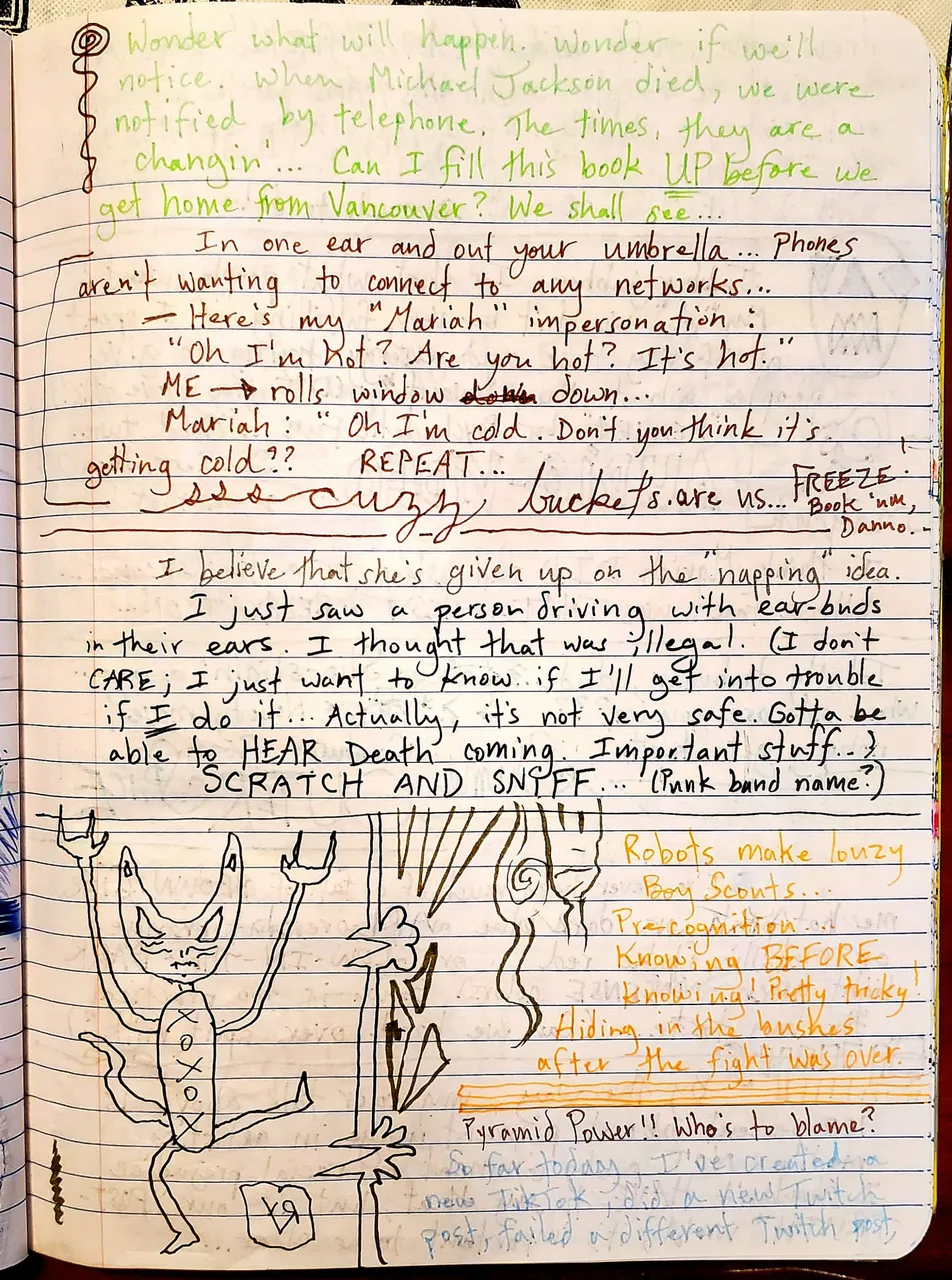 Wonder what will happen. Wonder if we'll
notice. When Michael Jackson died, we were
notified by telephone. The times, they are a
changin'... Can I fill this book UP before we
get home from Vancouver? We shall see...
In one ear and out your umbrella... Phones
aren't wanting to connect to any networks...
— Here's my "Mariah" impersonation:
"Oh I'm hot? Are you hot? It's hot."
ME → rolls window down down...
Mariah: "Oh I'm cold. Don't you think it's
getting cold?? REPEAT...
sss cuzy buckets are us... FREEZE!
Book 'um,
Danno.
I believe that she's given up on the "napping" idea.
I just saw a person driving with ear-buds
in their ears. I thought that was illegal. (I don't
CARE; I just want to know if I'll get into trouble
if I do it... Actually, it's not very safe. Gotta be
able to HEAR Death coming. Important stuff...)
SCRATCH AND SNIFF... (Punk band name?)
Robots make louzy
Boy Scouts...
Precognition...
Knowing BEFORE
Knowing! Pretty tricky!
Hiding in the bushes
after the fight was over.
X
O
X
O
X
Pyramid Power!! Who's to blame?
So far today, I've created a
new TikTok, did a new Twitch
post, failed a different Twitch post,